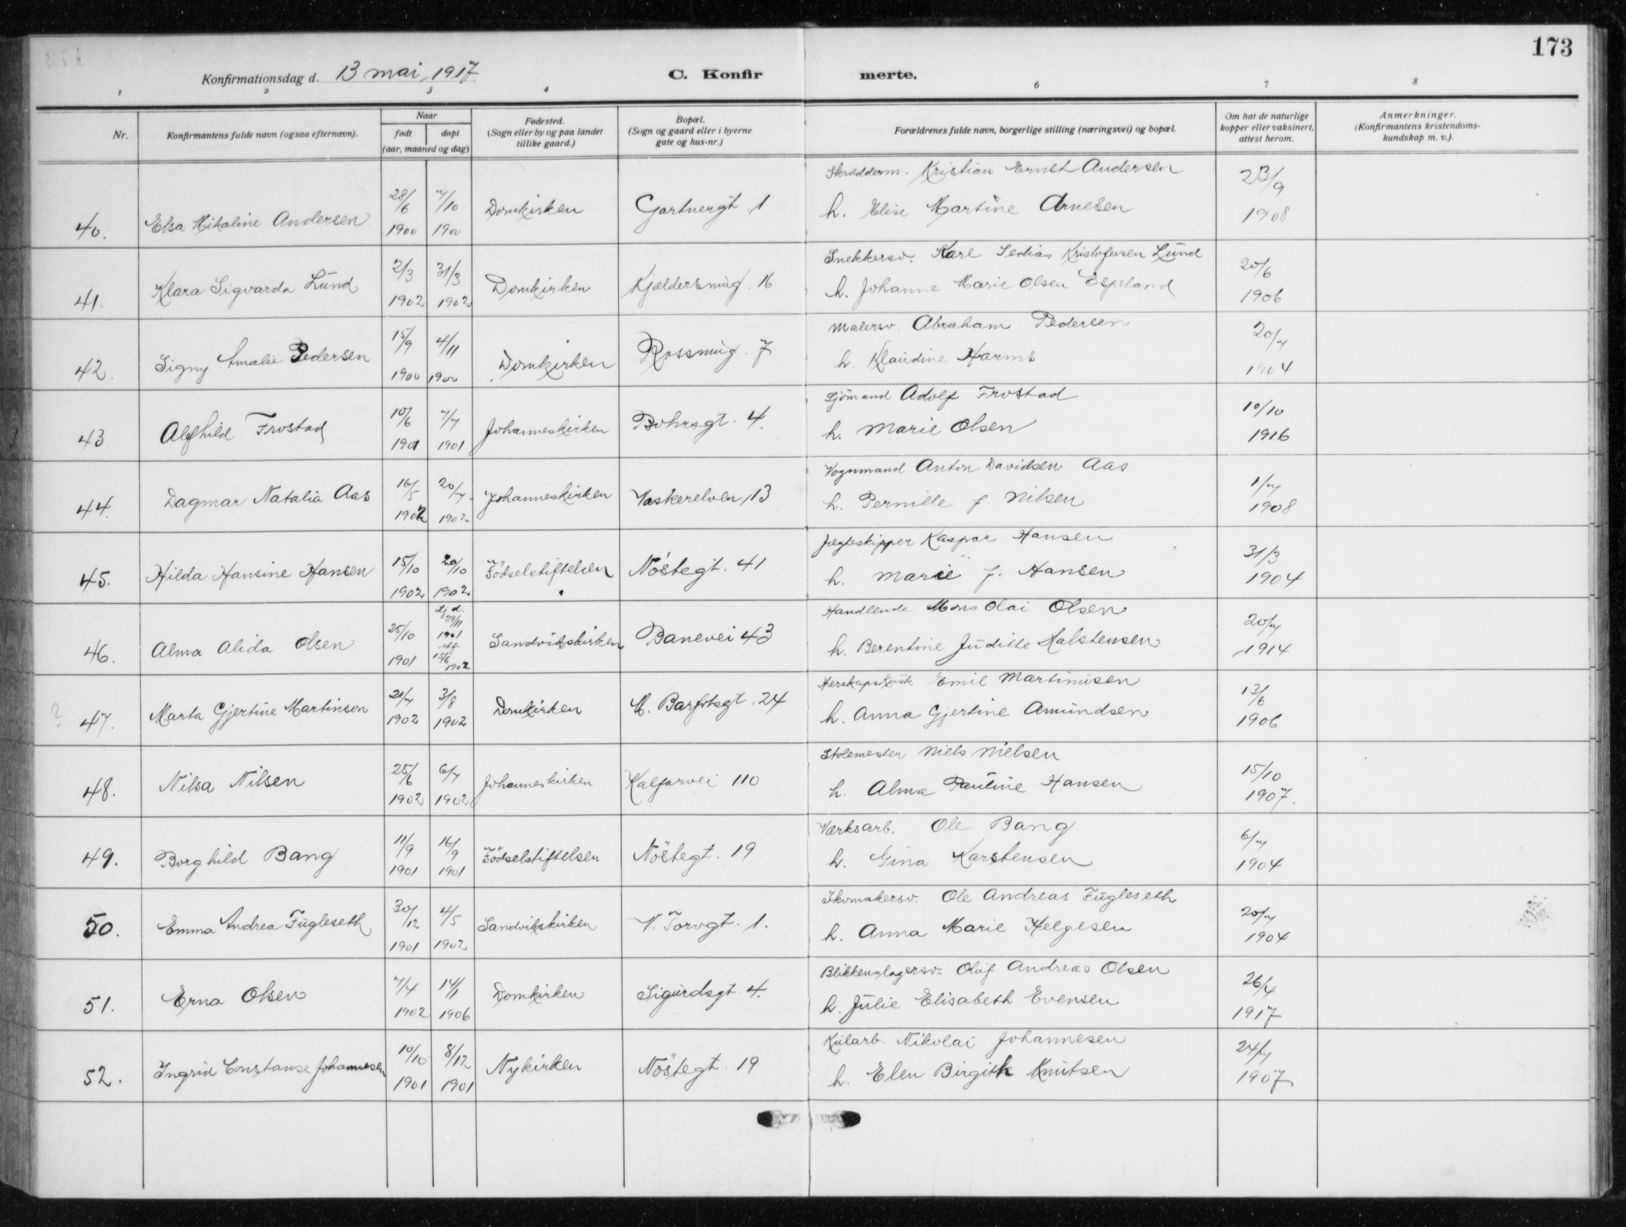 173
Konfirmationsdag d. 13 mai, 1917 C. Konfirmerte.
1 2 3 4 6 7 8
Nr. Konfirmantens fulde navn (ogsaa efternavn). Naar født døpt (aar, maaned og dag) Fødested. (Sogn eller by og paa landet tillike gaard.) Bopæl. (Sogn og gaard eller i byerne gate og hus-nr.) Forældrenes fulde navn, borgerlige stilling (næringsvei) og bopæl. Om hat de naturlige kopper eller vaksinert, attest herom. Anmerkninger. (Konfirmantens kristendomskundskap m. v.).
Skrædderm. Kristian Ernst Andersen
40. Elsa Mikaline Andersen 28/6 1900 7/10 1900 Domkirken Gartnergt 1 h. Elise Martine Arnesen 23/9 1908
Snekkersv. Karl Sedias Kristofersen Lund
41. Klara Sigvarda Lund 2/3 1902 31/3 1902 Domkirken Kjeldersmug. 16 h. Johanne Marie Olsen Espeland 20/6 1906
Malersv. Abraham Pedersen
42. Signy Amalie Pedersen 15/9 1900 4/11 1900 Domkirken Rossmug. 7 h. Klaudine Harms 20/7 1904
Sjömand Adolf Frostad
43 Alfhild Frostad 10/6 1901 7/7 1901 Johanneskirken Bohrsgt. 4. h. Marie Olsen 10/10 1916
Vognmand Anton Davidsen Aas
44. Dagmar Natalia Aas 16/5 1902 20/7 1902 Johanneskirken Vaskerelven 13 h. Pernille f. Nilsen 1/7 1908
Jægteskipper Kaspar Hansen
45. Hilda Hansine Hansen 15/10 1902 20/10 1902 Födselstiftelsen Nöstegt. 41 h. Marie f. Hansen 31/3 1904
Handlende Mons Olai Olsen
46. Alma Alida Olsen 25/10 1901 hj.d. 29/11 1901 stf. 15/6 1902 Sandvikskirken Banevei 43 h. Berentine Juditte Halstensen 20/7 1914
Herskapskusk Emil Martinusen
? 47. Marta Gjertine Martinson 21/7 1902 3/8 1902 Domkirken M. Barfotsgt. 24 h. Anna Gjertine Amundsen 13/6 1906
Stolemester Niels Nielsen
48. Nilsa Nilsen 25/6 1902 6/7 1902 Johanneskirken Kalfarvei 110 h. Alma Pauline Hansen 15/10 1907.
Værksarb. Ole Bang
49. Borghild Bang 11/9 1901 16/9 1901 Födselstiftelsen Nöstegt. 19 h. Gina Karstensen 6/7 1904
Skomakersv. Ole Andreas Fugleseth
50. Emma Andrea Fugleseth 30/12 1901 4/5 1902 Sandvikskirken V. Torvgt. 1. h. Anna Marie Helgesen 20/7 1904
Blikkenslagersv. Oluf Andreas Olsen
51. Erna Olsen 7/4 1902 14/1 1906 Domkirken Sigurdsgt 4. h. Julie Elisabeth Evensen 26/4 1917
Kularb. Nikolai Johannesen
52. Ingrid Constanse Johannesen 10/10 1901 8/12 1901 Nykirken Nöstegt. 19 h. Elen Birgith Knutsen 24/7 1907